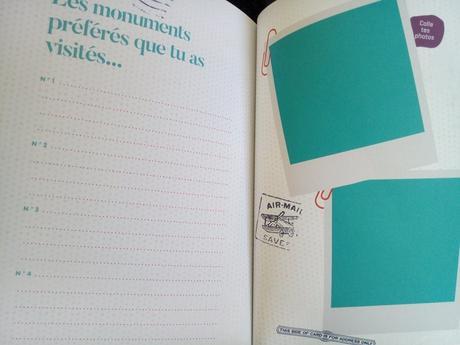 Les monuments
préférés que tu as
visités...
N°1
N°2
N°3
N°4
Colle
tes
photos
AIR-MAIL
SAVE
THIS SIDE OF CARD IS FOR ADDRESS ONLY